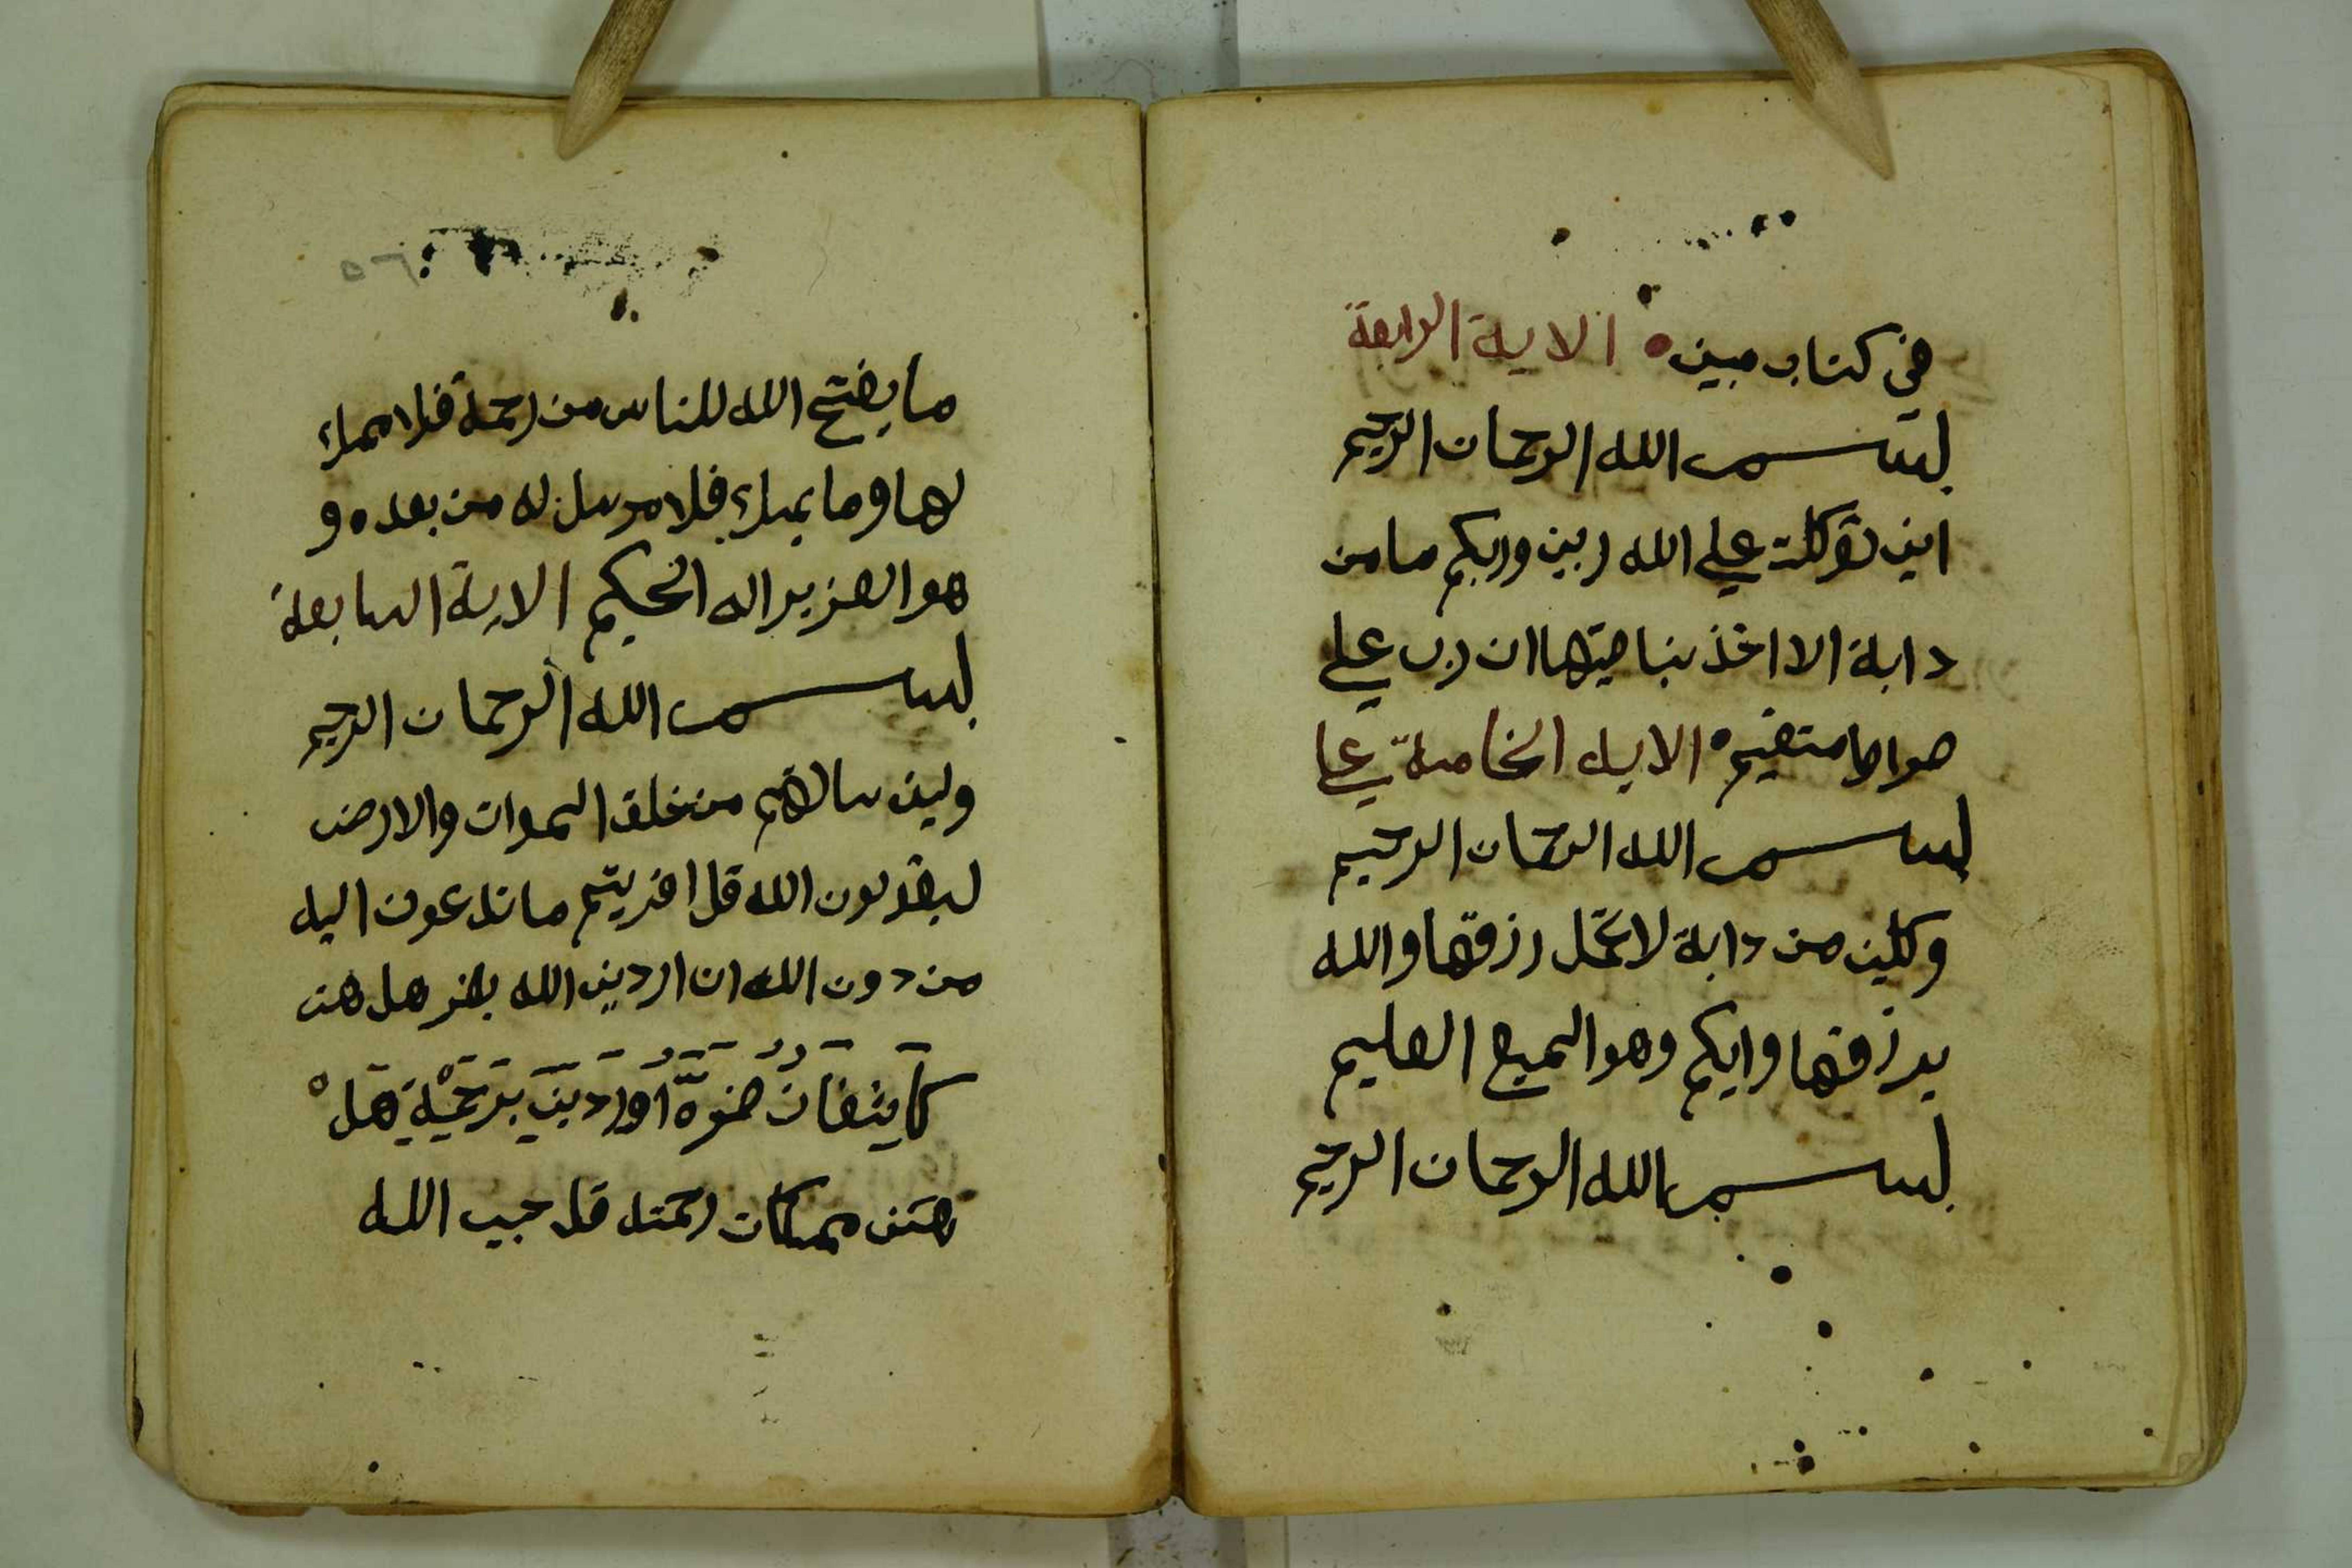 في كتاب مبين الاية الرابعة
بسم الله الرحمان الرحيم
اني توكلت علي الله ربي وربكم ما من
دابة الا اخذ بناصيتها ان رب علي
صراط متقيم الاية الخامسة علي
بسم الله الرحمان الرحيم
وكاين من دابة لا تحمل رزقها والله
يرزقها وايكم وهو السميع العليم
بسم الله الرحمان الرحيم
ما يفتح الله للناس من رحمة فلا ممسك
لها وما يمسك فلا مرسل له من بعده و
هو العزيز اله الحكيم الاية السابعة
بسم الله الرحمان الرحيم
ولين سالتهم من خلق السموات والارض
ليقولون الله قل افريتم ما تدعون اليه
من دون الله ان اردني الله بضر هل هن
كَاشفَاتُ ضره اَوْ اردني برحمة هل
هن ممسكات رحمته قل حسبي الله